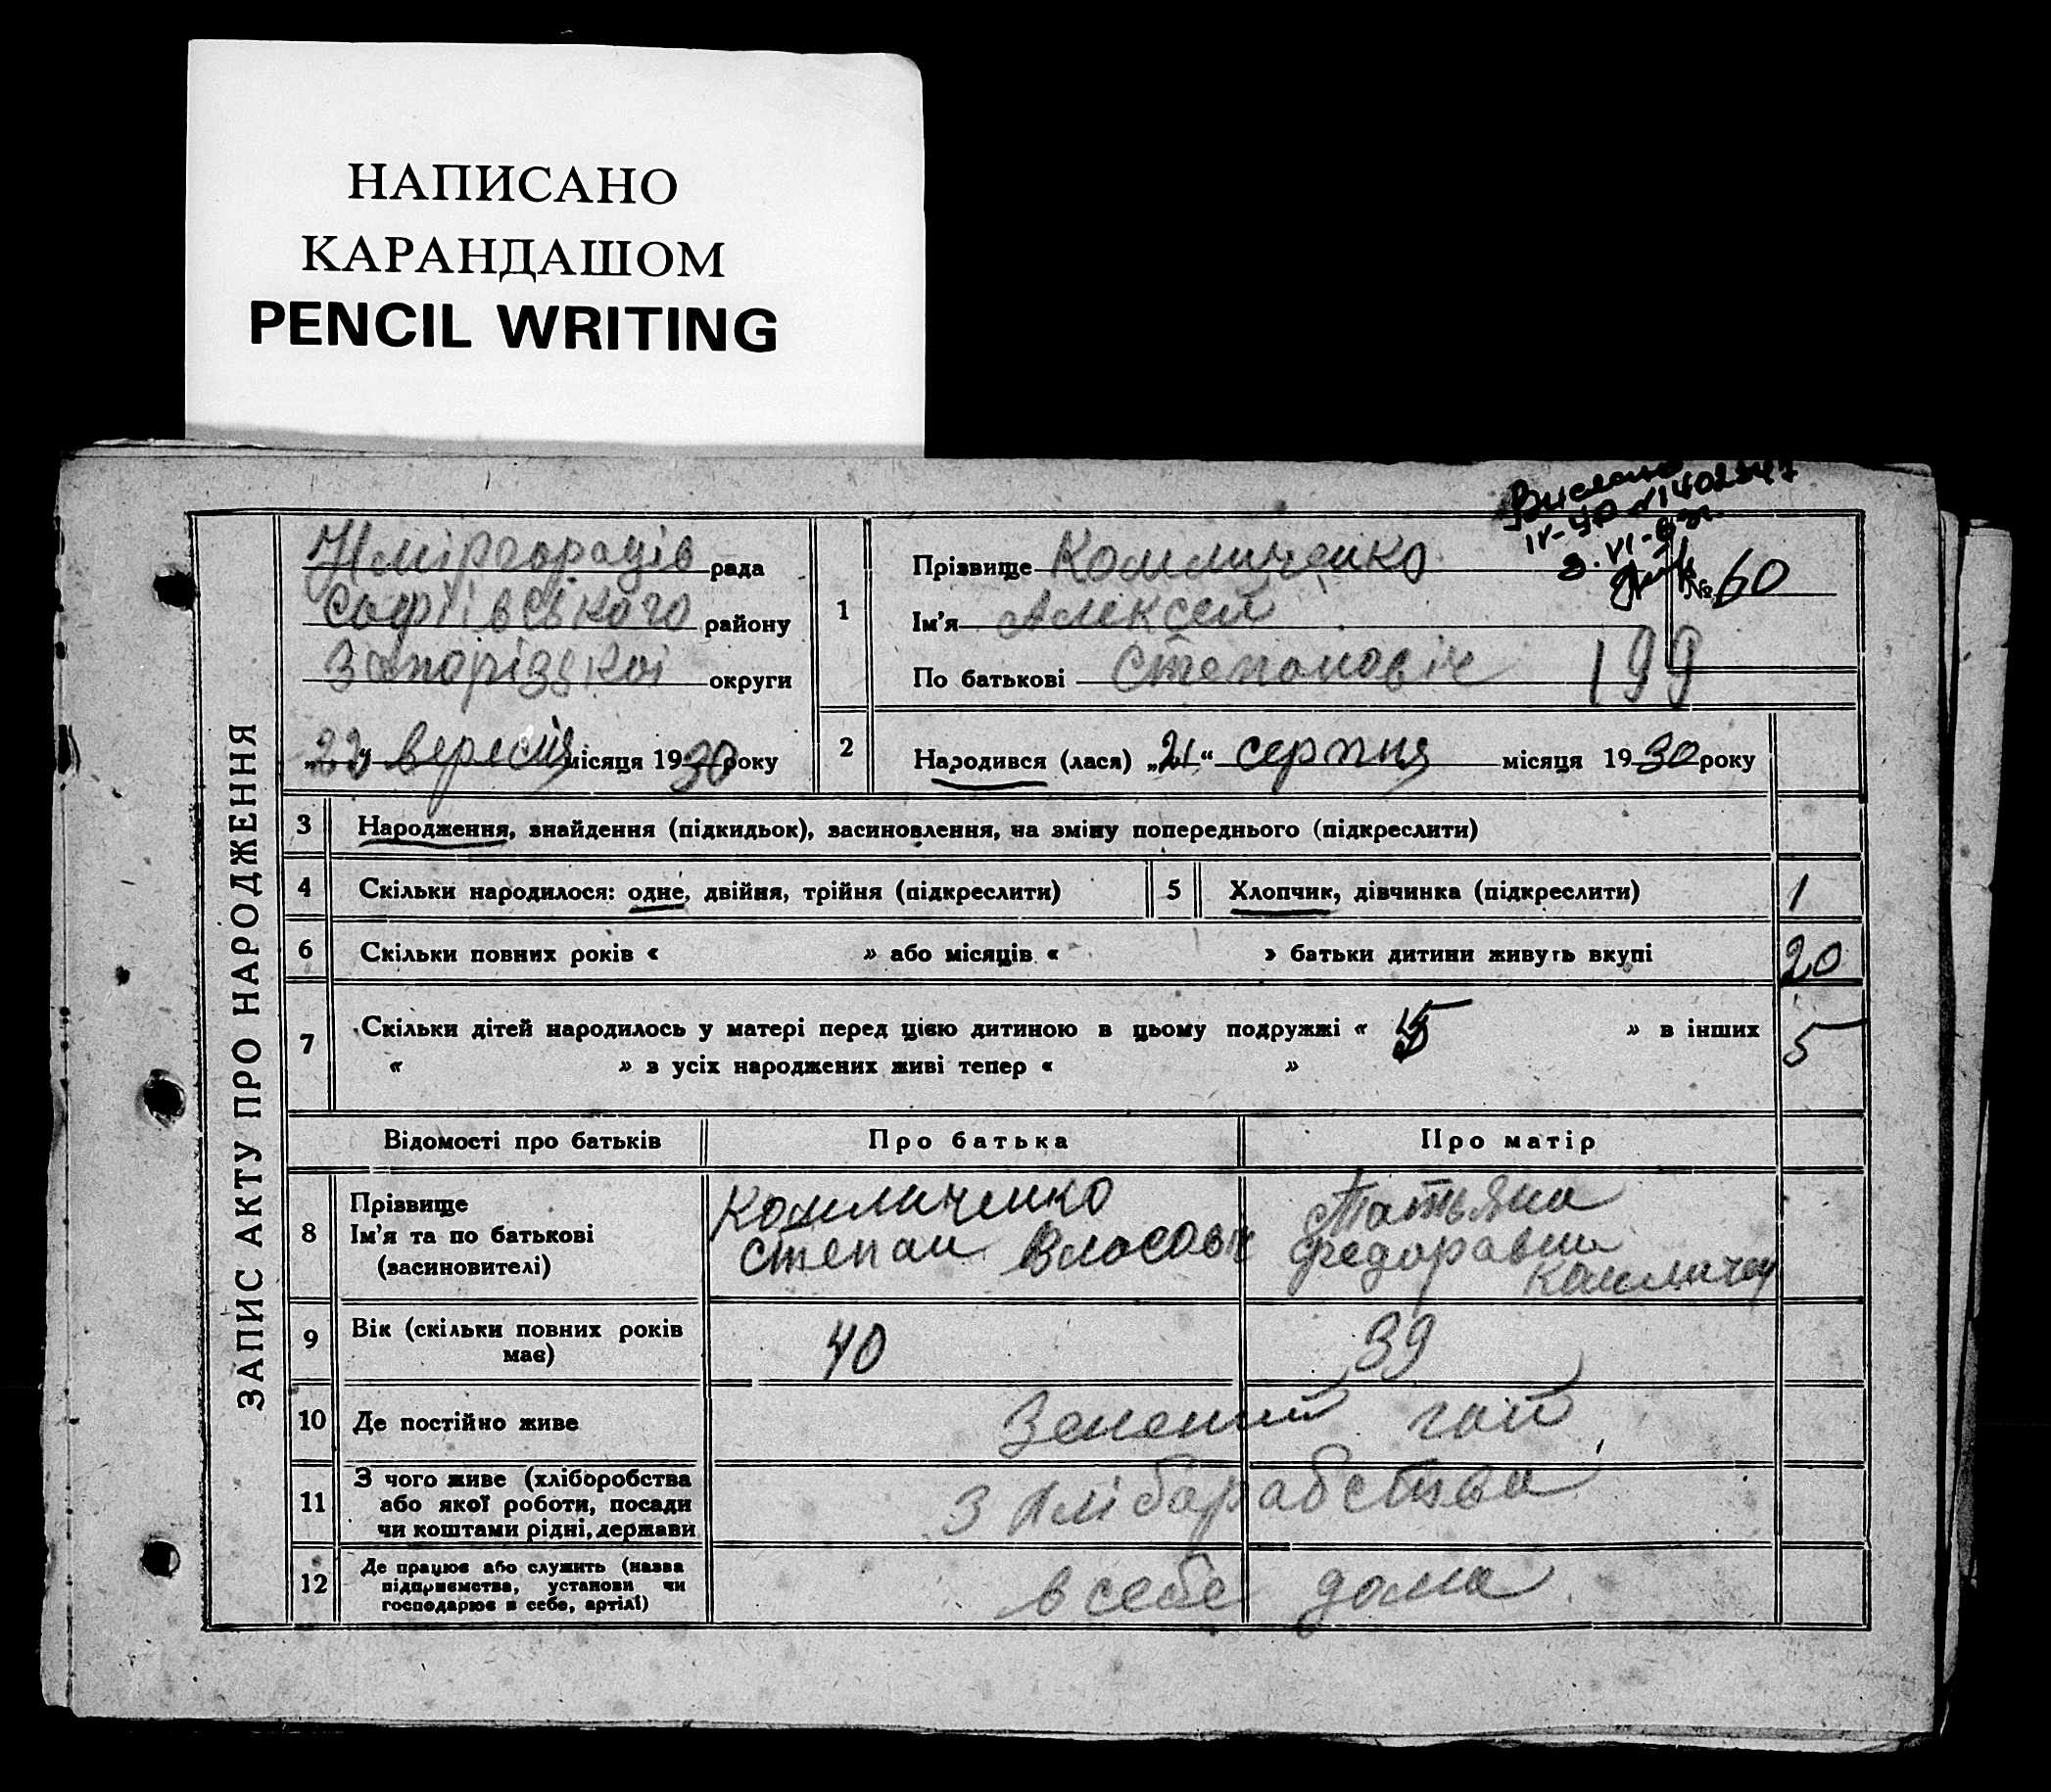 НАПИСАНО
КАРАНДАШОМ
PENCIL WRITING
ЗАПИС АКТУ ПРО НАРОДЖЕННЯ
рада
Софіївського району
Запорізькоі округи
„22“ вересня місяця 1930 року
1
Прізвище
Ім'я Алексей
По батькові Степановіч
№ 60
199
2 Народився (лася) „21“ серпня місяця 1930 року
3 Народження, знайдення (підкидьок), засиновлення, на зміну попереднього (підкреслити)
4 Скільки народилося: одне, двійня, трійня (підкреслити)
5 Хлопчик, дівчинка (підкреслити) 1
6 Скільки повних років « » або місяців « » батьки дитини живуть вкупі 20
7 Скільки дітей народилось у матері перед цією дитиною в цьому подружжі « 5 » в інших 5
« » з усіх народжених живі тепер « »
Відомості про батьків Про батька Про матір
8 Прізвище
Ім'я та по батькові
(засиновителі)
Степан Власов
Татьяна
Федоравна
9 Вік (скільки повних років
має) 40 39
10 Де постійно живе Зелений гай
11 З чого живе (хліборобства
або якої роботи, посади
чи коштами рідні, держави
З хлібарабства
12 Де працює або служить (назва
підприємства, установи чи
господарює в себе, артілі)
в себе дома